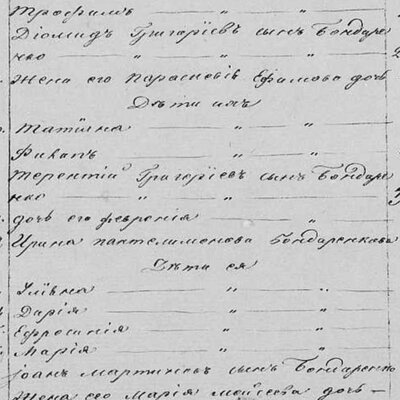 Трофимъ — " — "
Діомидъ Григоріевъ сынъ Бондаре
нко " " " "
Жена его Парасковія Ефимова дочь
Дѣти ихъ
Татіяна — " — "
" — "
Терентій Григоріевъ сынъ Бондаре
нко — " — "
дочь его Февронія — "
Ирина Пантелимонова Бондаренкова
Дѣти ея
Уліяна — " — "
Дарія — " — "
Ефросинія — " — "
Марія — " — "
Іоанъ Мартиновъ сынъ Бондаренко
Жена его Марія Моисеева дочь —